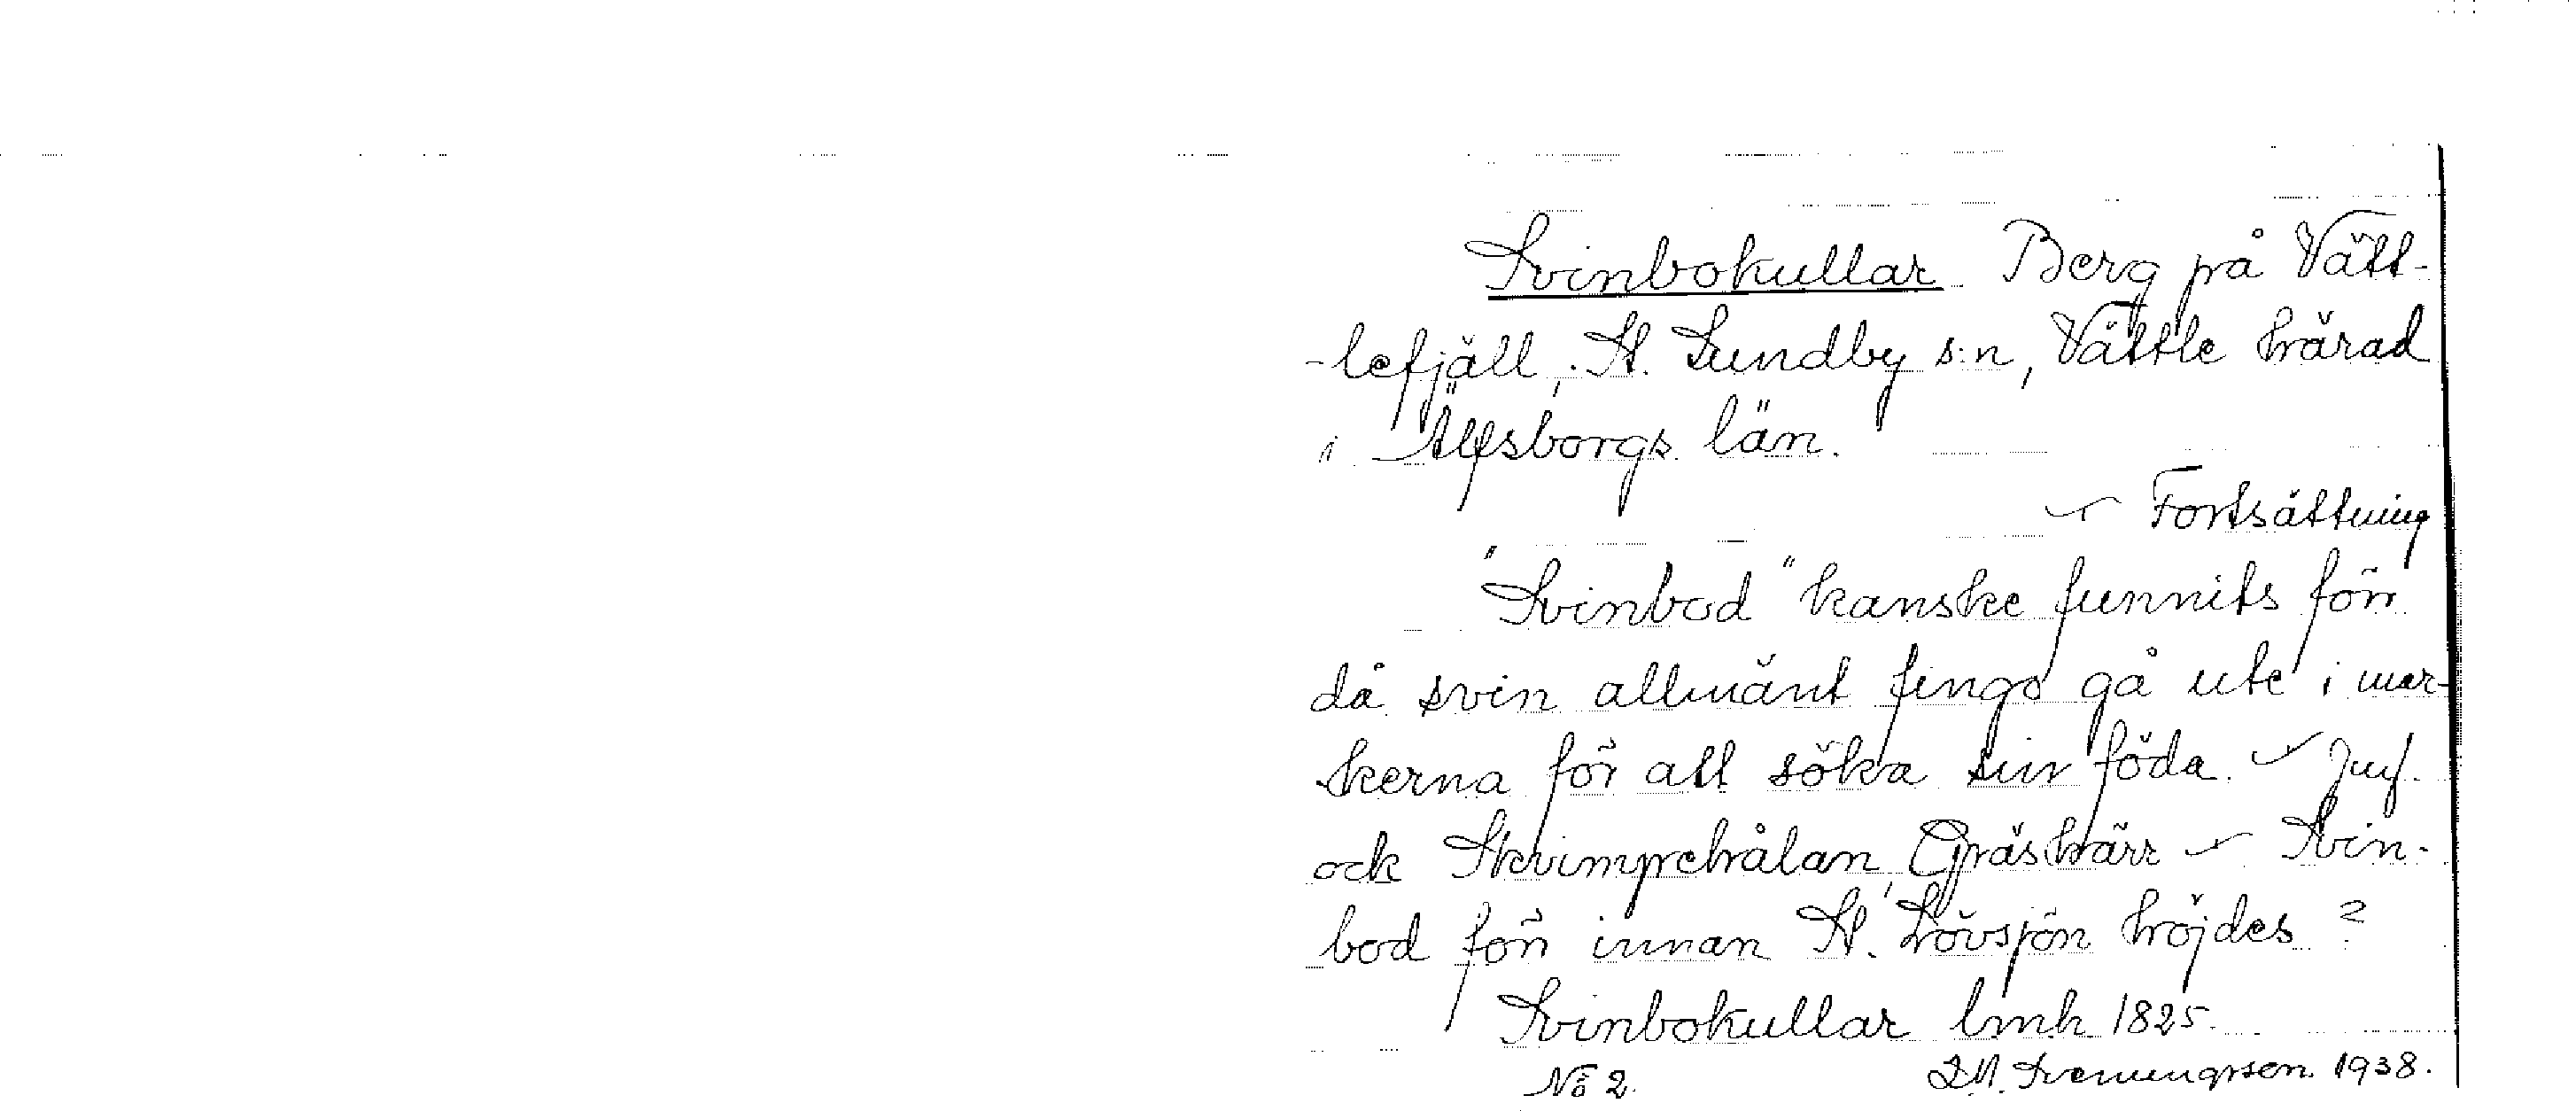 Svinbokullar Berg på Vätt-
-lefjäll, St. Lundby s:n, Vättle härad
i Älfsborgs län.
~ Fortsättning
"Svinbod" kanske funnits förr
då svin allmänt fingo gå ute i mar-
kerna för att söka sin föda. ~ Jmf.
ock Skrimprehålan, Gräskärr ~ Svin-
bod förr innan St. Lövsjön höjdes?
Svinbokullar lmk 1825.
No 2. Svenungsson 1938.